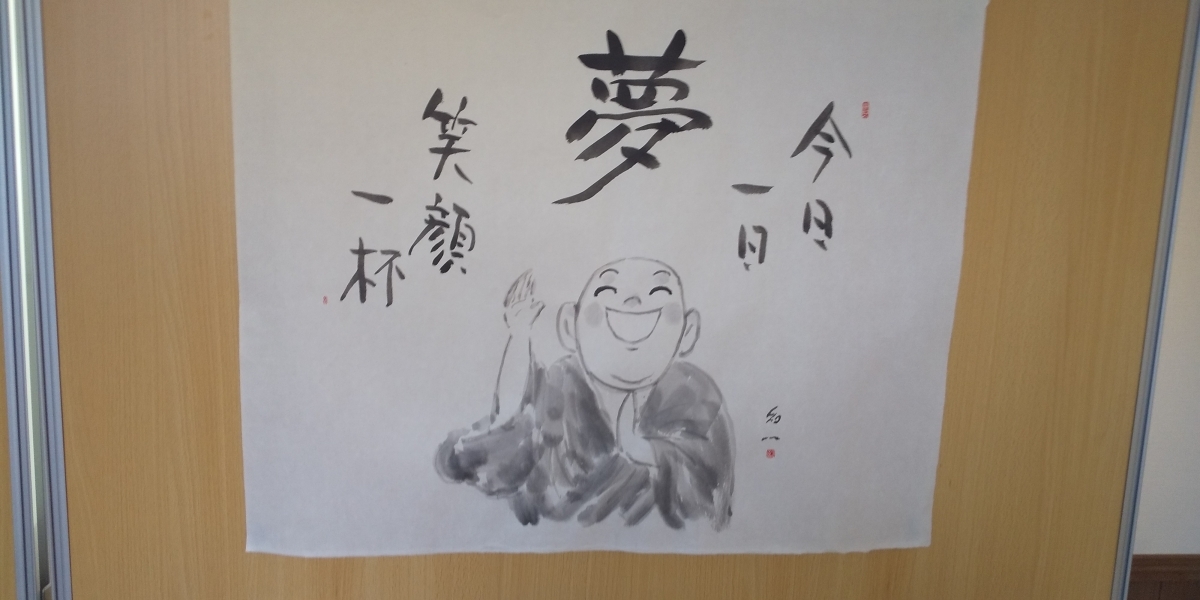 夢
今日
一日
笑顔
一杯